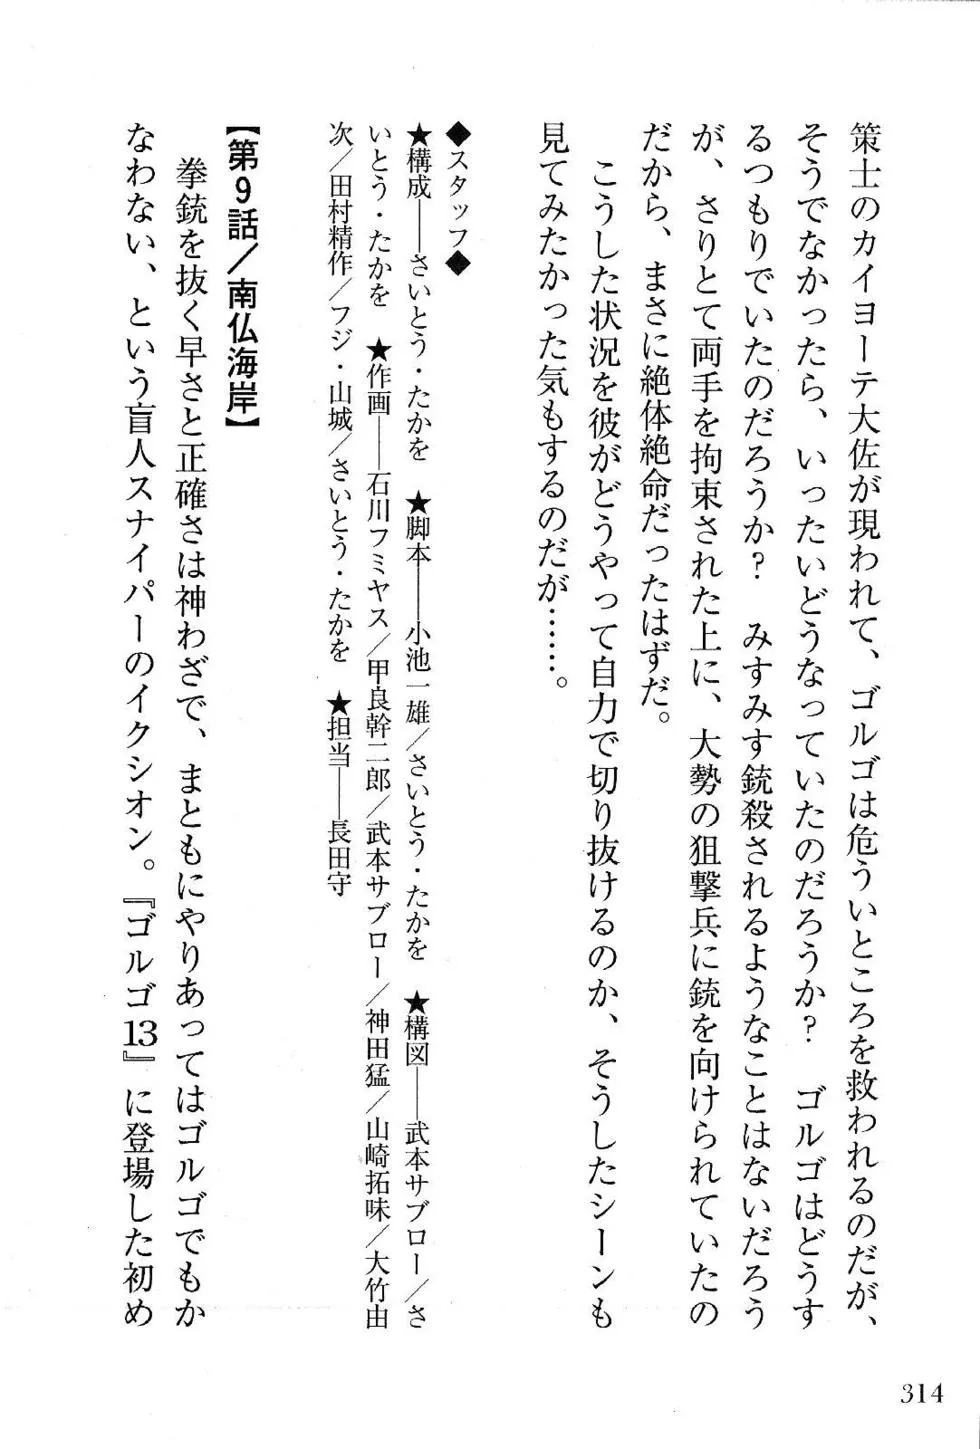 策士のカイヨーテ大佐が現われて、ゴルゴは危ういところを救われるのだが、
そうでなかったら、いったいどうなっていたのだろうか？　ゴルゴはどうす
るつもりでいたのだろうか？　みすみす銃殺されるようなことはないだろう
が、さりとて両手を拘束された上に、大勢の狙撃兵に銃を向けられていたの
だから、まさに絶体絶命だったはずだ。
　こうした状況を彼がどうやって自力で切り抜けるのか、そうしたシーンも
見てみたかった気もするのだが……。
◆スタッフ◆
★構成――さいとう・たかを　★脚本――小池一雄／さいとう・たかを　★構図――武本サブロー／さ
いとう・たかを　★作画――石川フミヤス／甲良幹二郎／武本サブロー／神田猛／山崎拓味／大竹由
次／田村精作／フジ・山城／さいとう・たかを　★担当――長田守
【第9話／南仏海岸】
　拳銃を抜く早さと正確さは神わざで、まともにやりあってはゴルゴでもか
なわない、という盲人スナイパーのイクシオン。『ゴルゴ13』に登場した初め
314